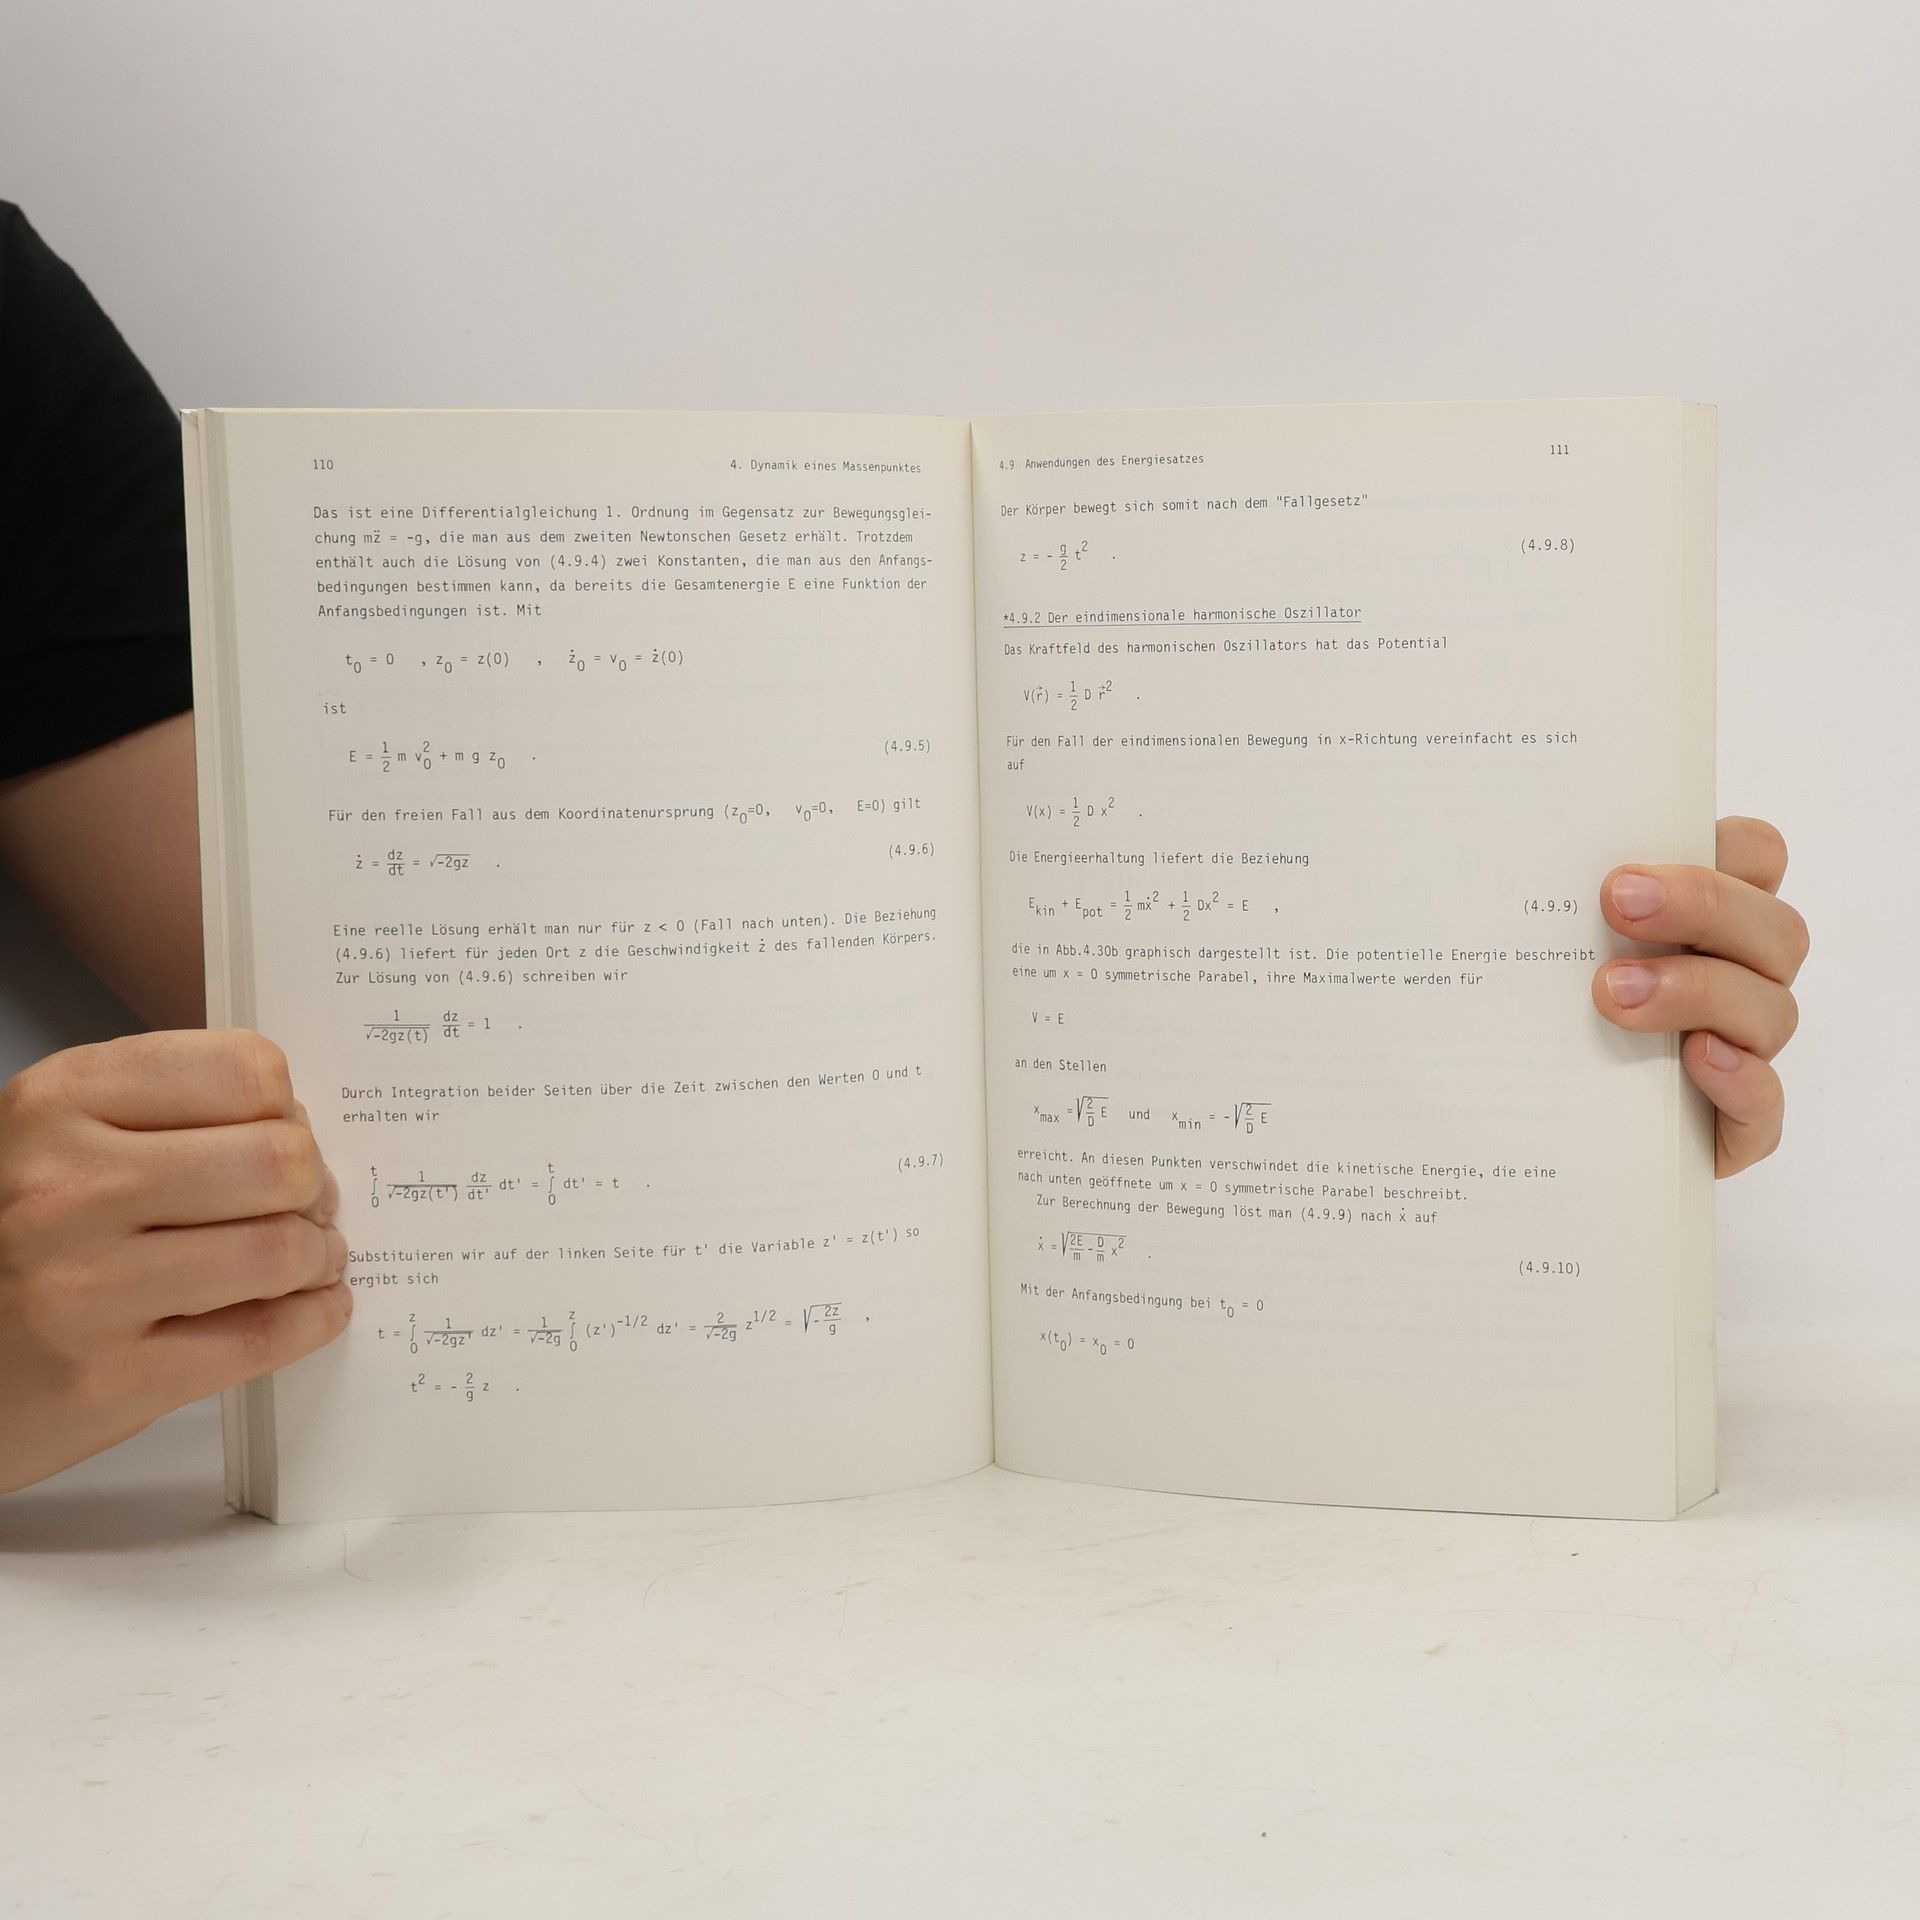 110
4. Dynamik eines Massenpunktes
Das ist eine Differentialgleichung 1. Ordnung im Gegensatz zur Bewegungsglei-
chung mz̈ = -g, die man aus dem zweiten Newtonschen Gesetz erhält. Trotzdem
enthält auch die Lösung von (4.9.4) zwei Konstanten, die man aus den Anfangs-
bedingungen bestimmen kann, da bereits die Gesamtenergie E eine Funktion der
Anfangsbedingungen ist. Mit
t₀ = 0 , z₀ = z(0) , ż₀ = v₀ = ż(0)
ist
E = 1/2 m v₀² + m g z₀ . (4.9.5)
Für den freien Fall aus dem Koordinatenursprung (z₀=0, v₀=0, E=0) gilt
ż = dz/dt = √-2gz . (4.9.6)
Eine reelle Lösung erhält man nur für z < 0 (Fall nach unten). Die Beziehung
(4.9.6) liefert für jeden Ort z die Geschwindigkeit ż des fallenden Körpers.
Zur Lösung von (4.9.6) schreiben wir
1/√-2gz(t) dz/dt = 1 .
Durch Integration beider Seiten über die Zeit zwischen den Werten 0 und t
erhalten wir
∫₀ᵗ 1/√-2gz(t') dz/dt' dt' = ∫₀ᵗ dt' = t . (4.9.7)
Substituieren wir auf der linken Seite für t' die Variable z' = z(t') so
ergibt sich
t = ∫₀ᶻ 1/√-2gz' dz' = 1/√-2g ∫₀ᶻ (z')^-1/2 dz' = 2/√-2g z^1/2 = √(-2z/g) ,
t² = - 2/g z .
4.9 Anwendungen des Energiesatzes
111
Der Körper bewegt sich somit nach dem "Fallgesetz"
z = - g/2 t² . (4.9.8)
*4.9.2 Der eindimensionale harmonische Oszillator
Das Kraftfeld des harmonischen Oszillators hat das Potential
V(r⃗) = 1/2 D r⃗² .
Für den Fall der eindimensionalen Bewegung in x-Richtung vereinfacht es sich
auf
V(x) = 1/2 D x² .
Die Energieerhaltung liefert die Beziehung
E_kin + E_pot = 1/2 mẋ² + 1/2 Dx² = E , (4.9.9)
die in Abb.4.30b graphisch dargestellt ist. Die potentielle Energie beschreibt
eine um x = 0 symmetrische Parabel, ihre Maximalwerte werden für
V = E
an den Stellen
x_max = √(2/D E) und x_min = -√(2/D E)
erreicht. An diesen Punkten verschwindet die kinetische Energie, die eine
nach unten geöffnete um x = 0 symmetrische Parabel beschreibt.
Zur Berechnung der Bewegung löst man (4.9.9) nach ẋ auf
ẋ = √(2E/m - D/m x²) . (4.9.10)
Mit der Anfangsbedingung bei t₀ = 0
x(t₀) = x₀ = 0